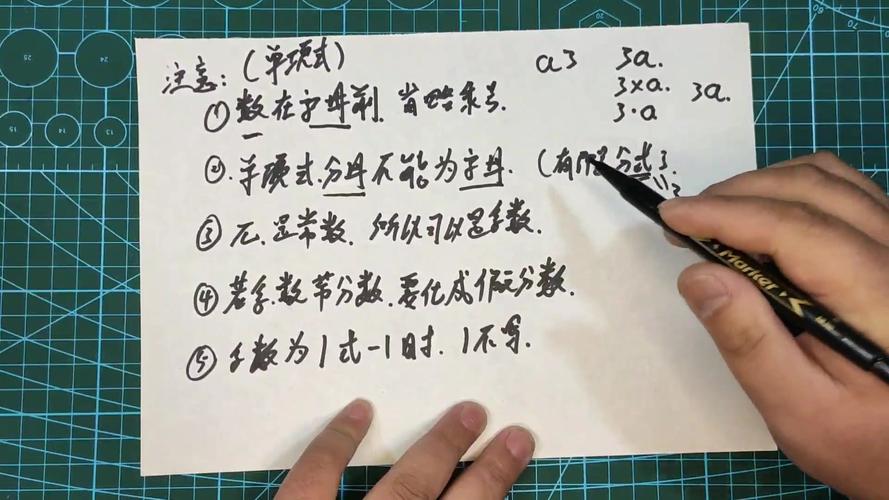 注意：(单项式)
a3 3a.
3×a. 3a.
3·a
① 数在字母前. 省略乘号.
② 单项式.分母不能为字母. (有 是分式了.
③ π.是常数. 所以可以是系数.
④ 若系数带分数.要化成假分数.
⑤ 系数为1或-1时. 1不写.
Marker